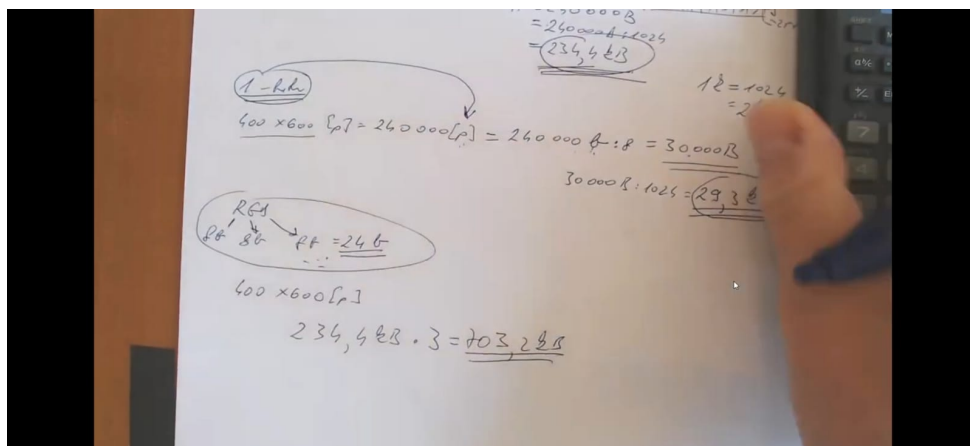 = 240000b : 1024
= 234,4 kB
1k = 1024
400 × 600 [p] = 240 000 [p] = 240 000 b : 8 = 30.000B
30 000 B : 1024 = 29,3 k
RGB
8b 8b 8b = 24 b
400 × 600 [p]
234,4 kB · 3 = 703,2 kB